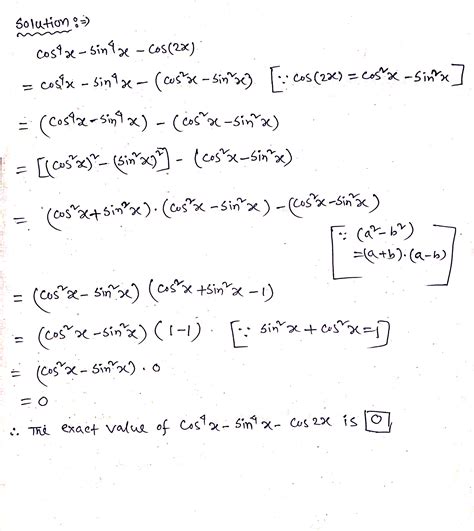 Solution :⇒
cos⁴x - sin⁴x - cos(2x)
= cos⁴x - sin⁴x - (cos²x - sin²x) [∵ cos(2x) = cos²x - sin²x]
= (cos⁴x - sin⁴x) - (cos²x - sin²x)
= [(cos²x)² - (sin²x)²] - (cos²x - sin²x)
= (cos²x + sin²x) . (cos²x - sin²x) - (cos²x - sin²x)
[∵ (a² - b²)
= (a+b) . (a-b)]
= (cos²x - sin²x) (cos²x + sin²x - 1)
= (cos²x - sin²x) (1-1) . [∵ sin²x + cos²x = 1]
= (cos²x - sin²x) . 0
= 0
∴ The exact value of cos⁴x - sin⁴x - cos2x is 0